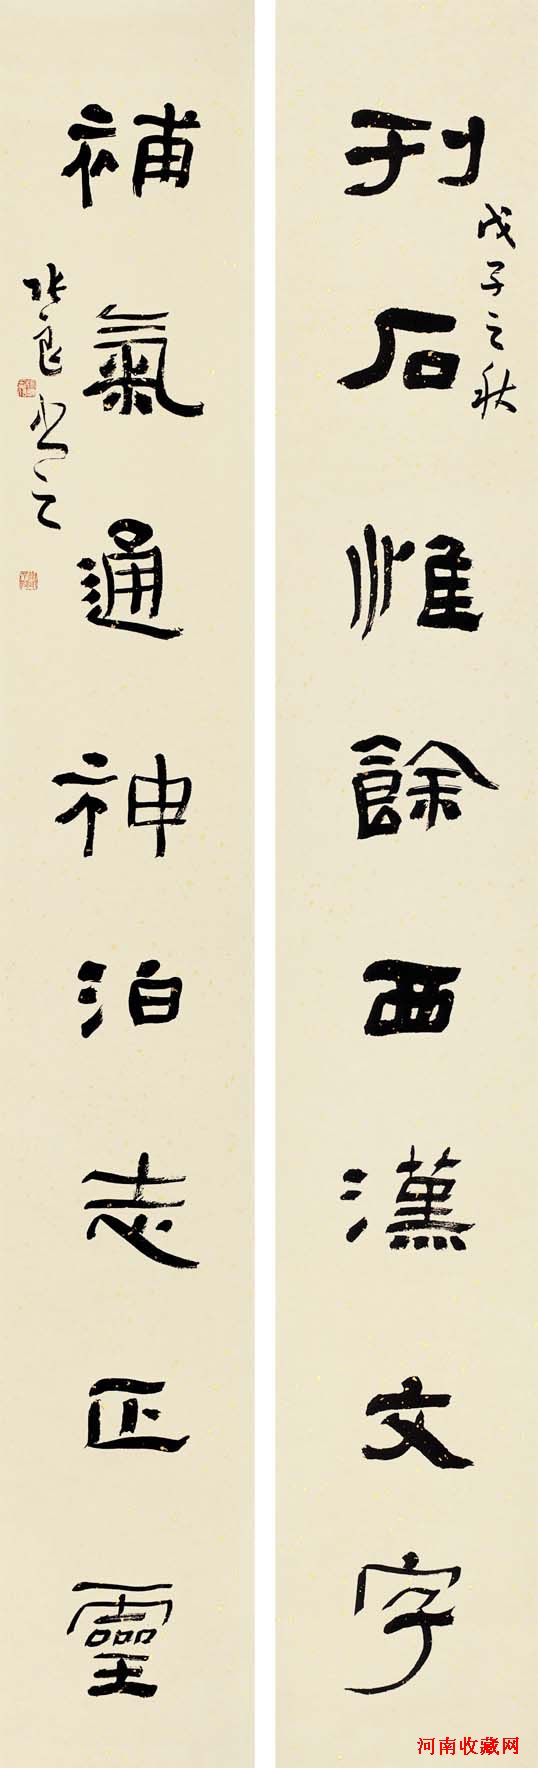 刊石惟餘西漢文字
戊子之秋
補氣通神泊志正靈
張良書之
河南收藏网